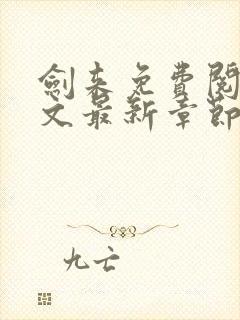 劍來免費閱
文最新章節
九亡